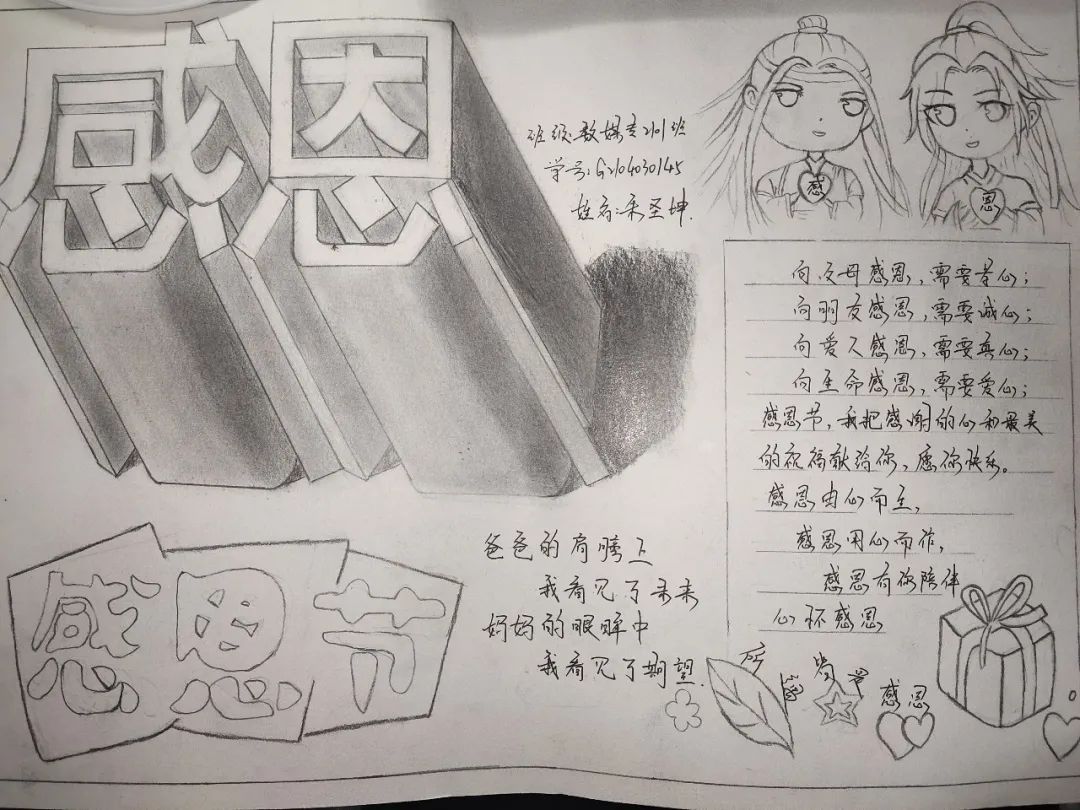 感恩
班级:数媒专2101班
学号:G2104030145
姓名:宋圣坤.
感
恩
向父母感恩,需要孝心;
向朋友感恩,需要诚心;
向爱人感恩,需要真心;
向生命感恩,需要爱心;
感恩节,我把感谢的心和最美
的祝福献给你,愿你快乐。
感恩由心而生,
感恩用心而作,
感恩有你陪伴
心怀感恩
所遇皆是感恩
爸爸的肩膀上
我看见了未来
妈妈的眼眸中
我看见了期望.
感恩节